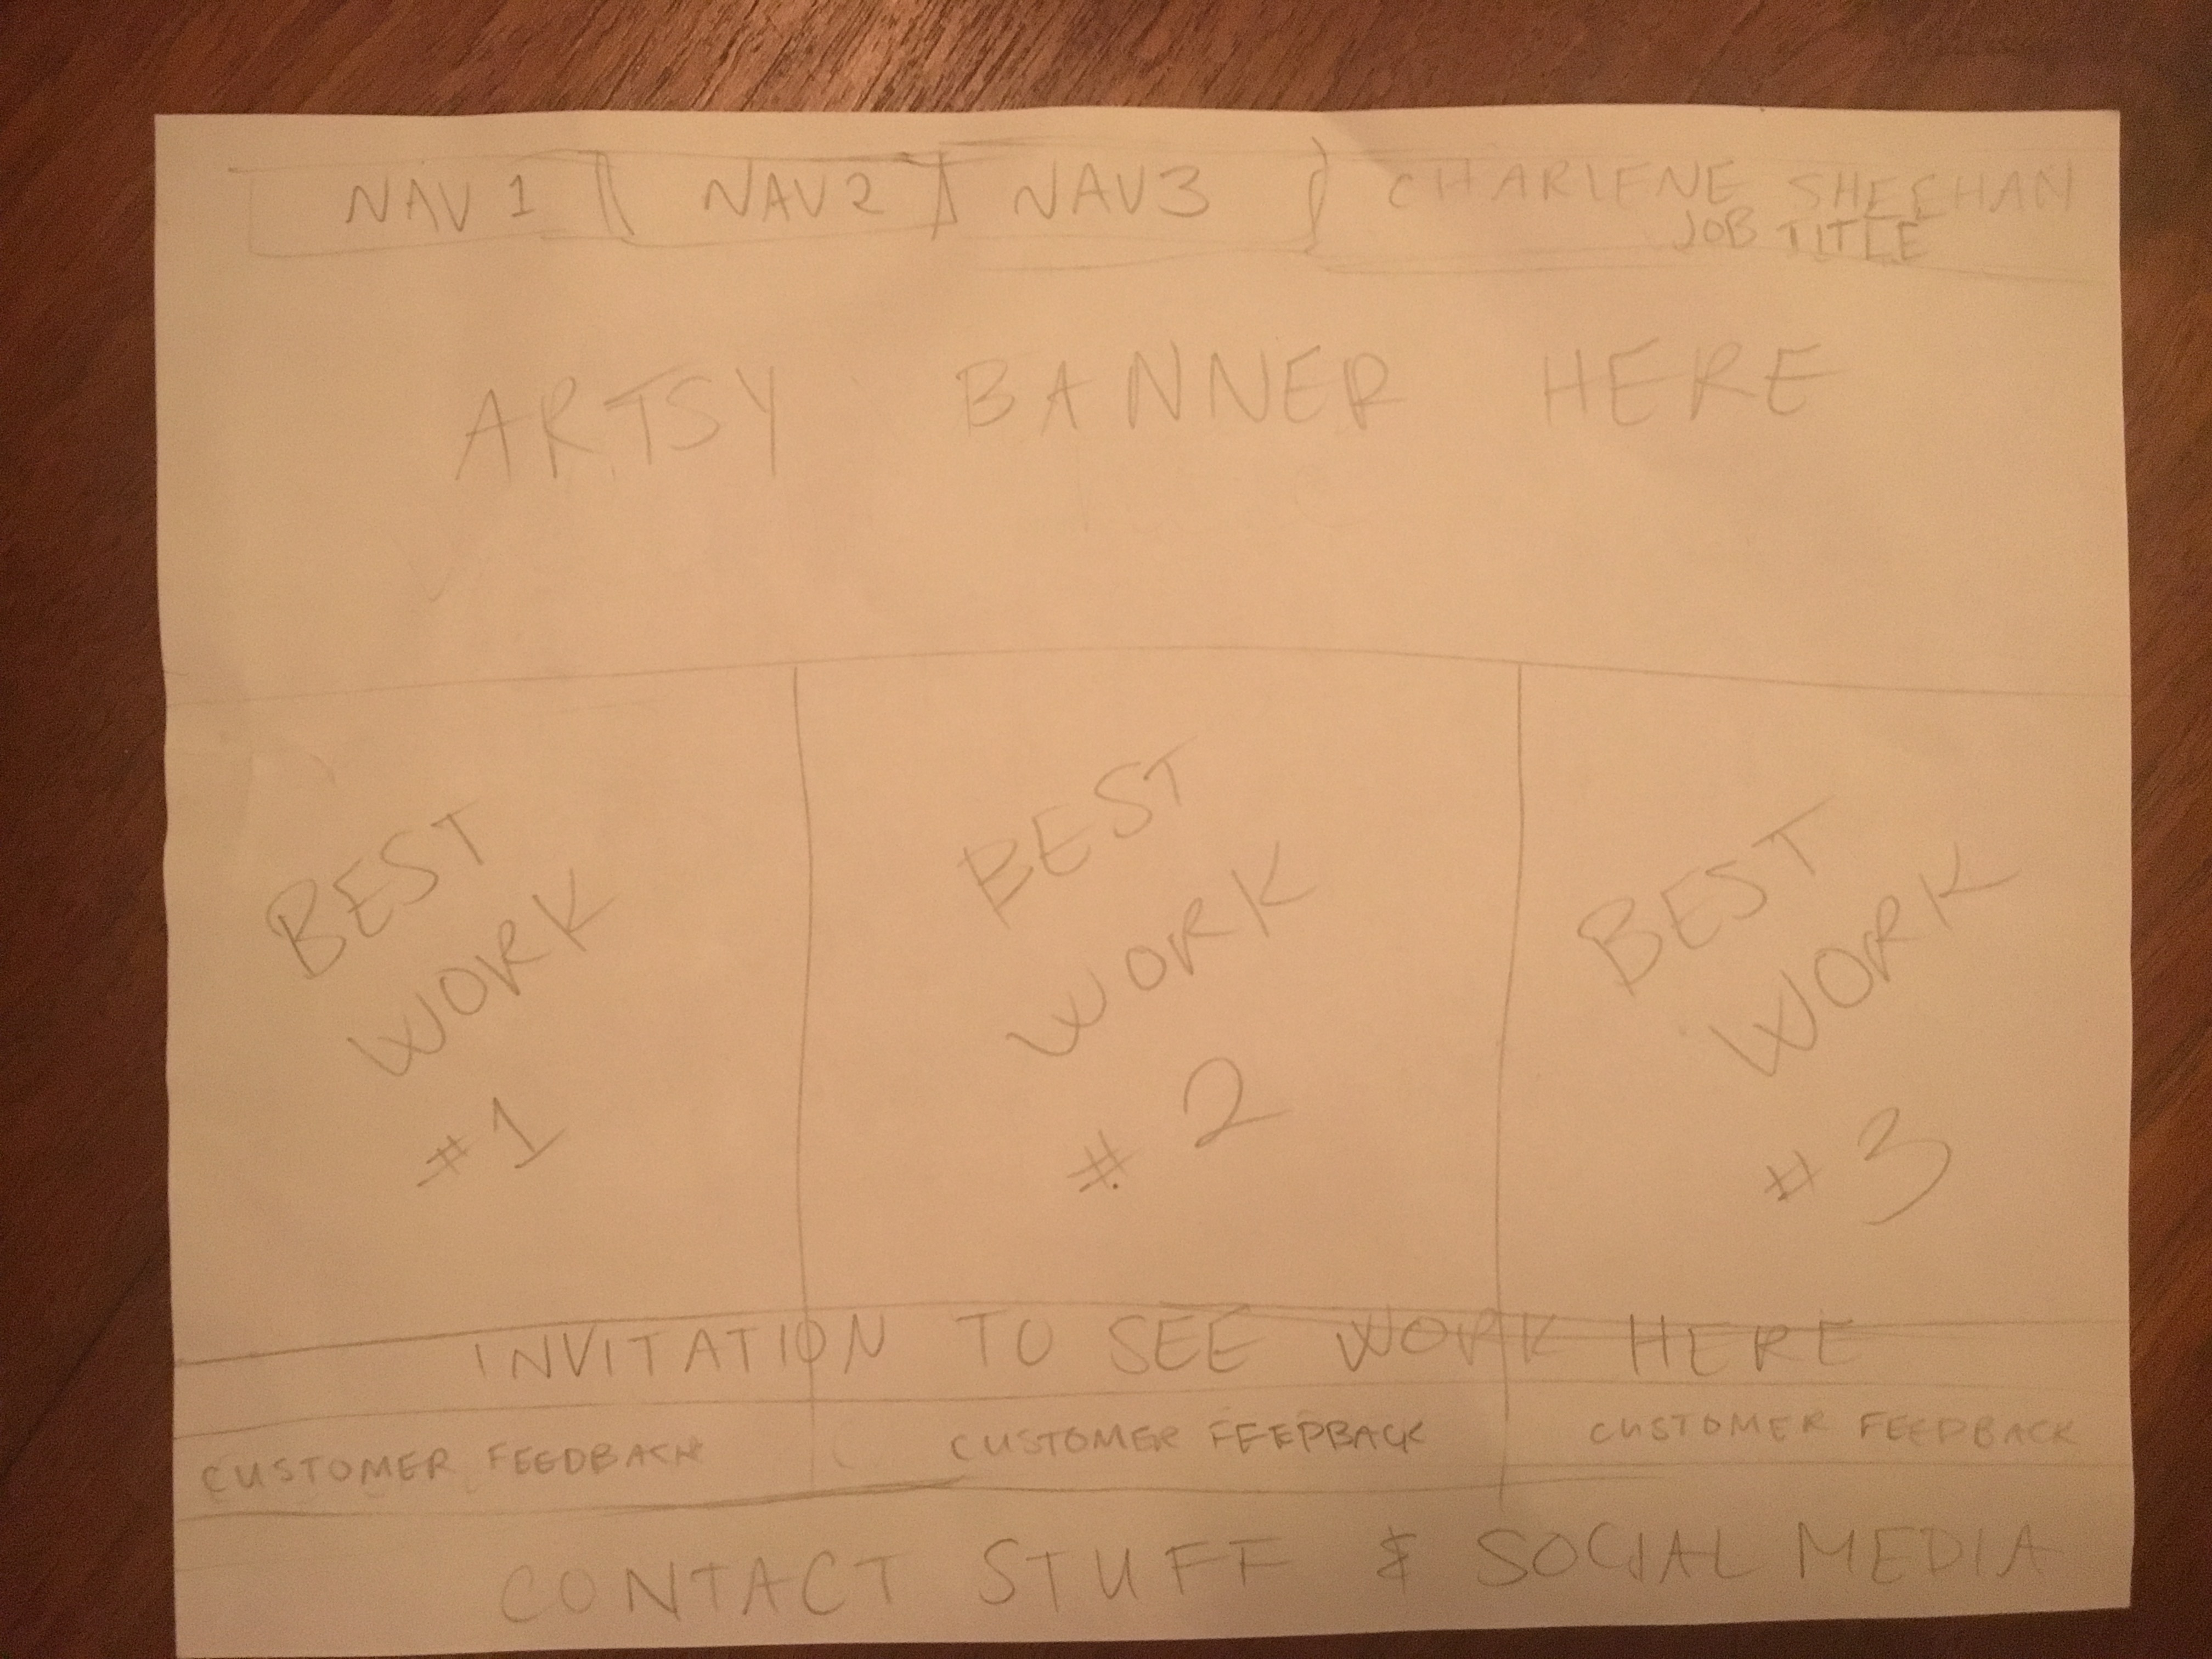 NAV 1 NAV 2 NAV 3 CHARLENE SHEEHAN
JOB TITLE
ARTSY BANNER HERE
BEST
WORK
#1
BEST
WORK
# 2
BEST
WORK
# 3
INVITATION TO SEE WORK HERE
CUSTOMER FEEDBACK CUSTOMER FEEDBACK CUSTOMER FEEDBACK
CONTACT STUFF & SOCIAL MEDIA